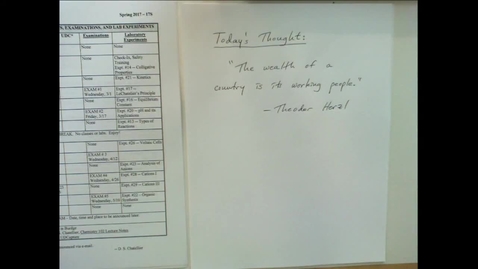 Spring 2017 – 17S
S, EXAMINATIONS, AND LAB EXPERIMENTS
Examinations Laboratory Experiments
None None
None Check-In, Safety Training
Expt. #14 – Colligative Properties
None Expt. #27 – Kinetics
EXAM #1 Wednesday, Expt. #17 – LeChatelier's Principle
None Expt. #16 – Equilibrium Constant
EXAM #2 Friday, 3/17 Expt. #20 – pH and its Applications
None Expt. #15 – Types of Reactions
BREAK. No classes or labs. Enjoy!
None Expt. #24 – Voltaic Cells
EXAM # 3 Wednesday, 4/12
None Expt. #25 – Analysis of
EXAM #4 Wednesday, 4/26 Expt. #28 – Cations I
None Expt. #29 – Cations II
EXAM #5 Wednesday, Expt. #32 – Organic Synthesis
None None
Time, date and place to be announced later
– D. S. Chandler
Today's Thought:
"The wealth of a
country is its working people."
– Theodor Herzl